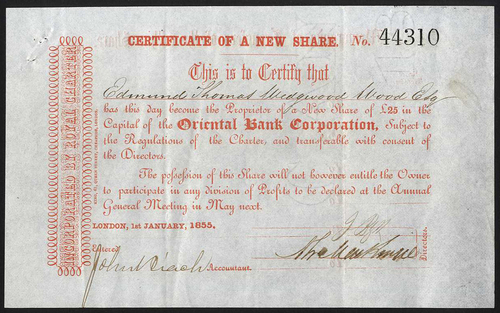 CERTIFICATE OF A NEW SHARE. No. 44310
This is to Certify that
Edmund Thomas Wedgwood Wood Esq
has this day become the Proprietor of a New Share of £25 in the
Capital of the Oriental Bank Corporation, Subject to
the Regulations of the Charter, and transferable with consent of
the Directors.
The possession of this Share will not however entitle the Owner
to participate in any division of Profits to be declared at the Annual
General Meeting in May next.
LONDON, 1st JANUARY, 1855.
Entered
John Accountant.
Directors.
INCORPORATED BY ROYAL CHARTER